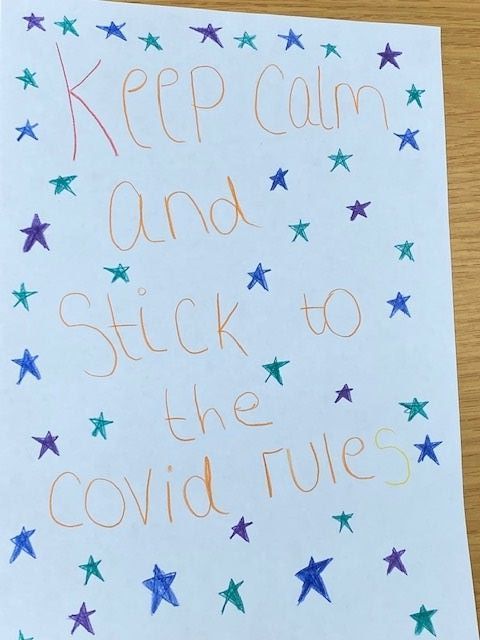 Keep calm
and
Stick to
the
covid rules